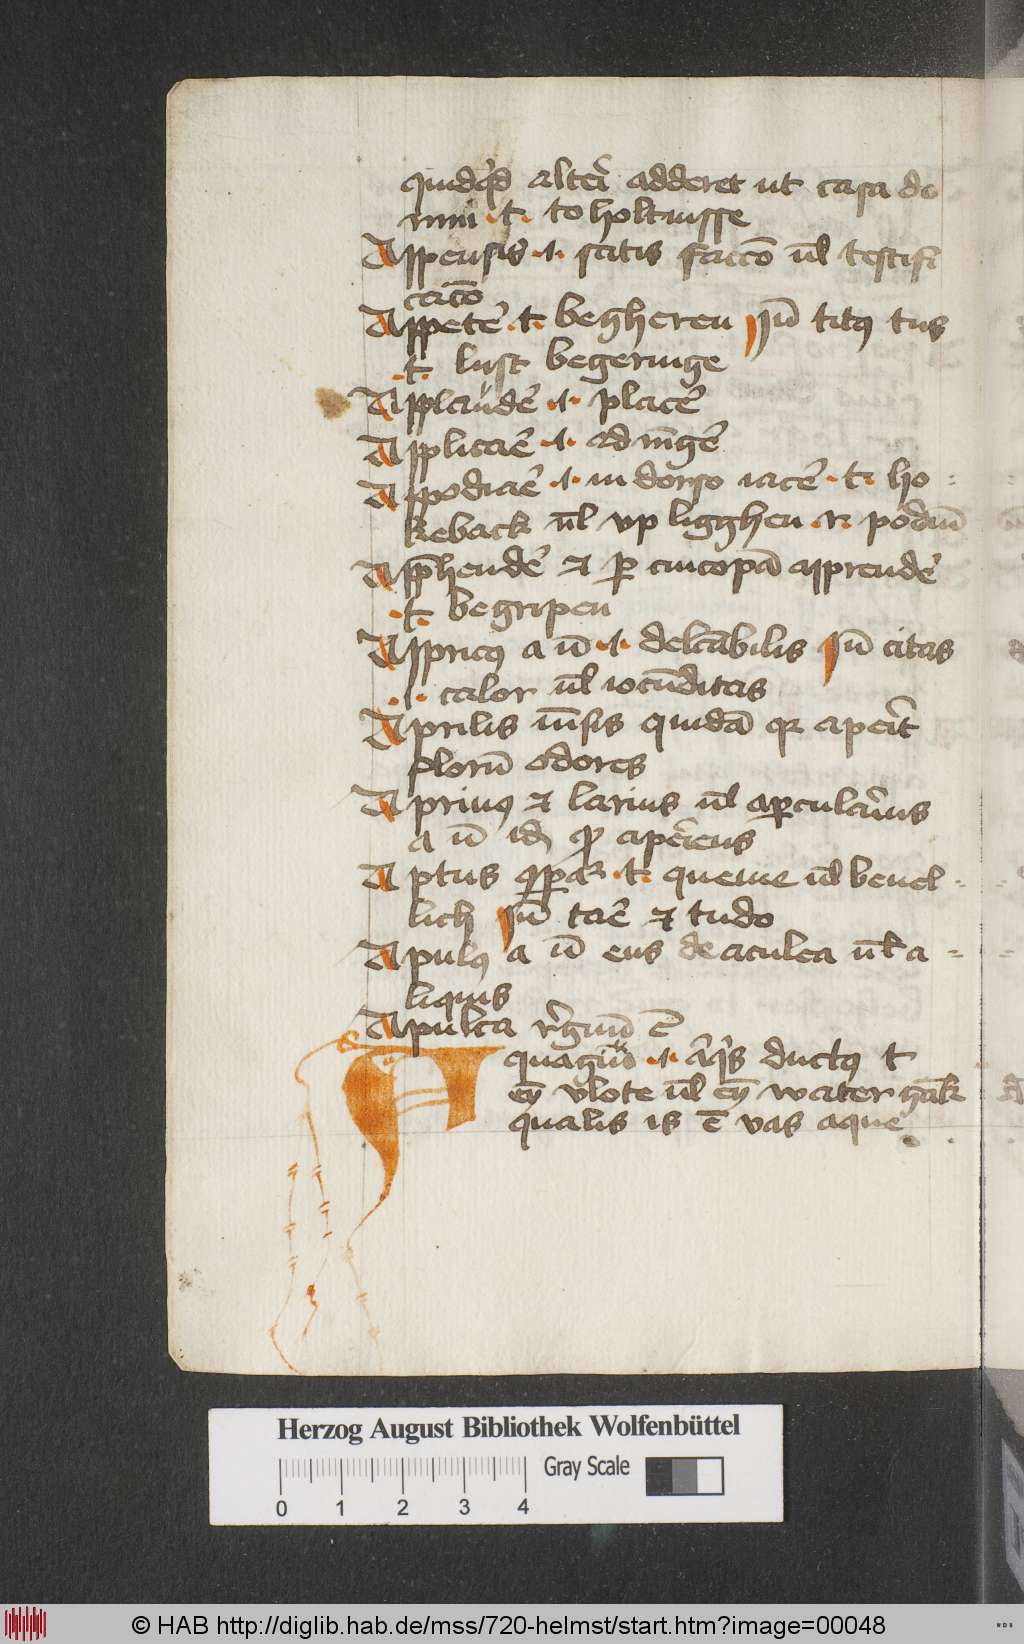 quidq̉d alteri̾ adderet ut casa do
mini ·t· to holtnisse
Appensis ·i· satis faccō ūl testifi
cacō
Appete̾ ·t· begheren Jn̄ titꝯ tus
·t· lust begeringe
Applaude̾ ·i· place̾
Applicae̾ ·i· adiūge̾
Appodiae̾ ·i· in dorso iace̾ ·t· ho
keback ūl vp ligghen ·r· podiū
App̄hende̾ ⁊ ꝑ cincopā apprende̾
·t· begripen
Appricꝯ a ū ·i· delcābilis Jn̄ citas
·i· calor ūl iocūditas
Aprilis mēsis quidā qꝛ apeit̾
florū odores
Aprinꝯ ⁊ larius ūl aꝑculari̾us
a ū id̄ qͦ aperiens
Aptus ·t· queme ūl heuel
lich Jn̄ tae̾ ⁊ tudo
Apulꝯ a ū ens de aculea ūl a
liquis
Apulea r̾gnū ē
Aquagiū ·i· aq̄s ductꝯ t
eyn vlote ūl eyn water gāk
qualis is ē vas aque
Herzog August Bibliothek Wolfenbüttel
0 1 2 3 4 Gray Scale
© HAB http://diglib.hab.de/mss/720-helmst/start.htm?image=00048